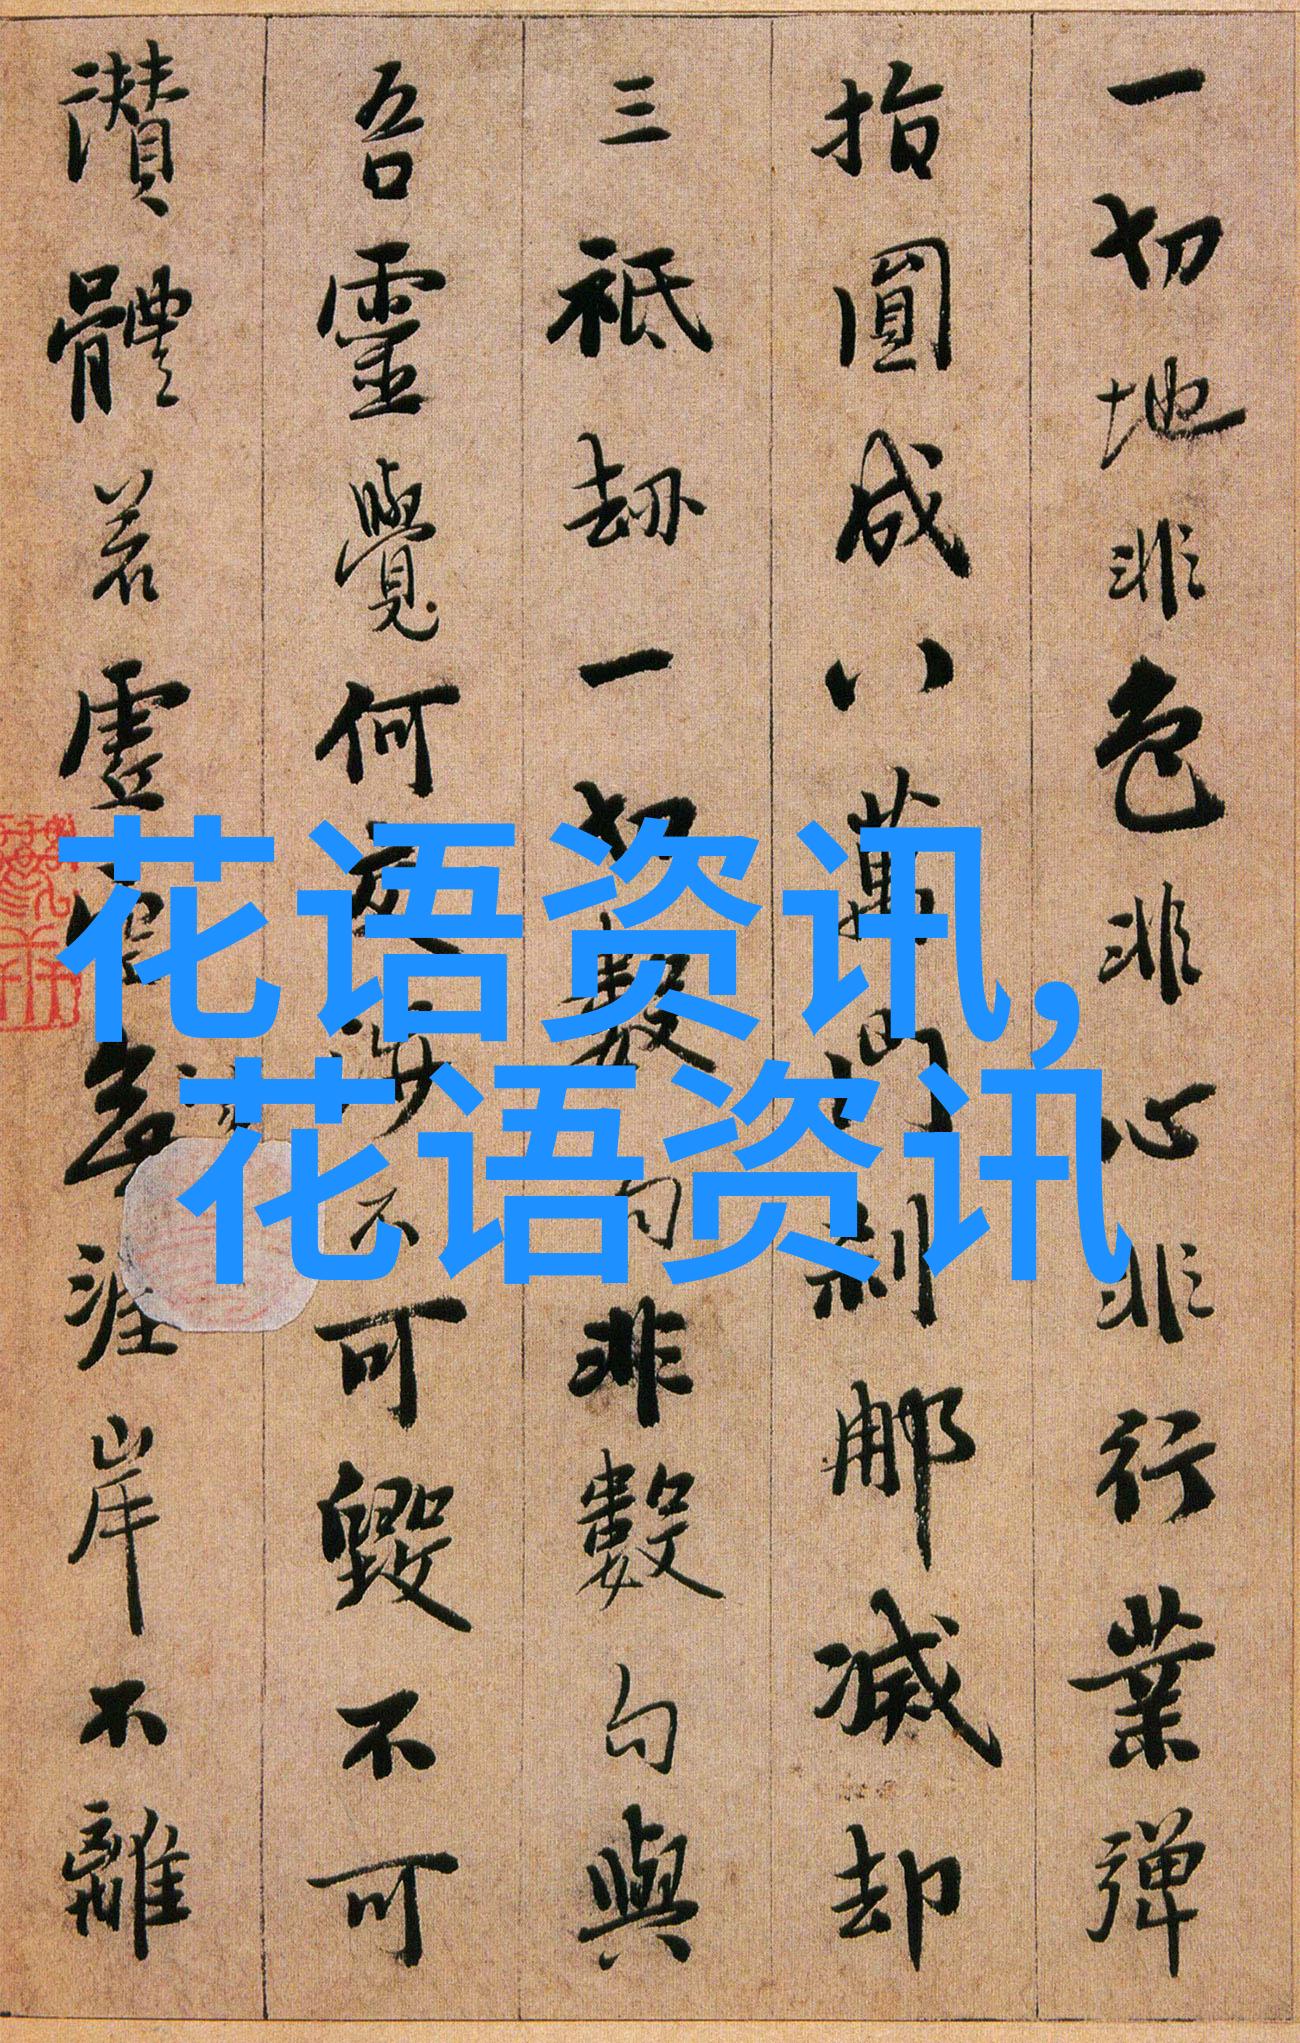 一切地非色非心非行業彈
指圓成八萬門剎那滅却
三祇劫一切數句非數句與
吾靈覺何交涉不可毀不可
讚體若虛空涯岸不離
花语资讯,
花语资讯